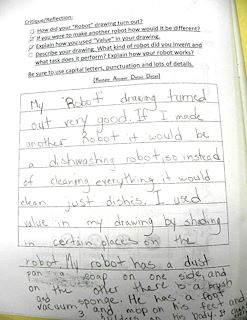 Critique/Reflection:
How did your "Robot" drawing turn out?
If you were to make another robot how would it be different?
Explain how you used "Value" in your drawing.
Describe your drawing. What kind of robot did you invent and
what task does it perform? Explain how your robot works?
Be sure to use capital letters, punctuation and lots of details.
My "Robot" drawing turned
out very good. If I made
another Robot it would be
a dishwashing robot, so instead
of cleaning everything it would
clean just dishes. I used
value in my drawing by shading
in certain places on the
robot. My robot has a dust
pan soap on one side, and
on the other there is a
and vacuum sponge. He has a
and mop on his feet and
on his body. It